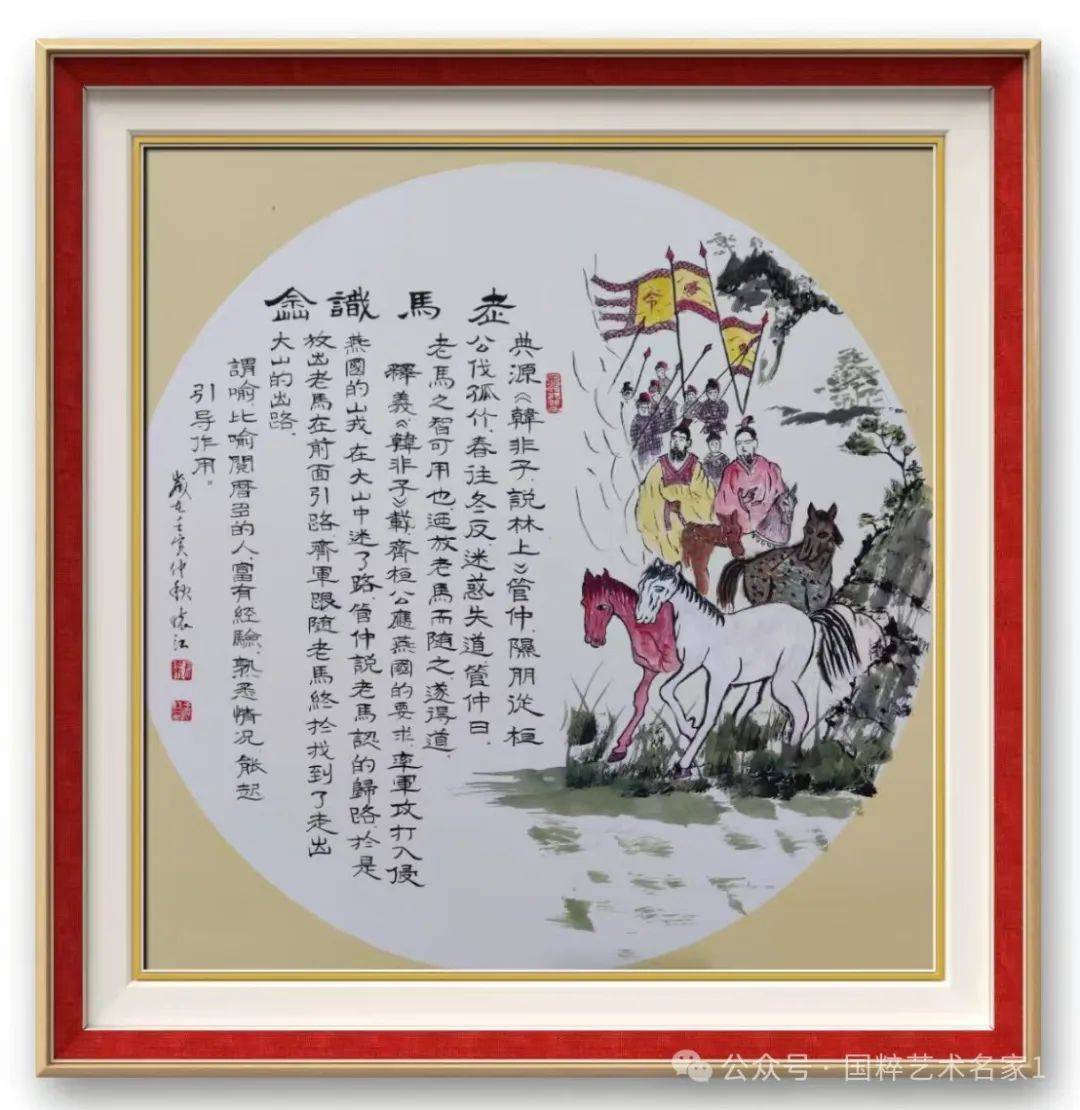 老馬識途
典源《韓非子、說林上》管仲、隰朋從桓
公伐孤竹、春往冬反、迷惑失道、管仲曰、
老馬之智可用也、迺放老馬而随之、遂得道、
釋義《韓非子》載、齊桓公應燕國的要求、率軍攻打入侵
燕國的山戎、在大山中迷了路、管仲説老馬認的歸路、於是
放出老馬在前面引路、齊軍跟随老馬終於找到了走出
大山的出路、
謂喻、比喻閱曆多的人、富有經驗、熟悉情况、能起
引导作用。
歲在壬寅仲秋懷江
令
公众号 · 国粹艺术名家1